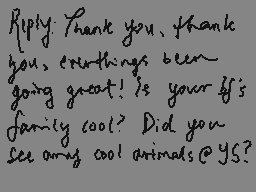 Riply: Thank you, thank
you, everthings been
going great! Is your bf's
family cool? Did you
see any cool animals @ YS?